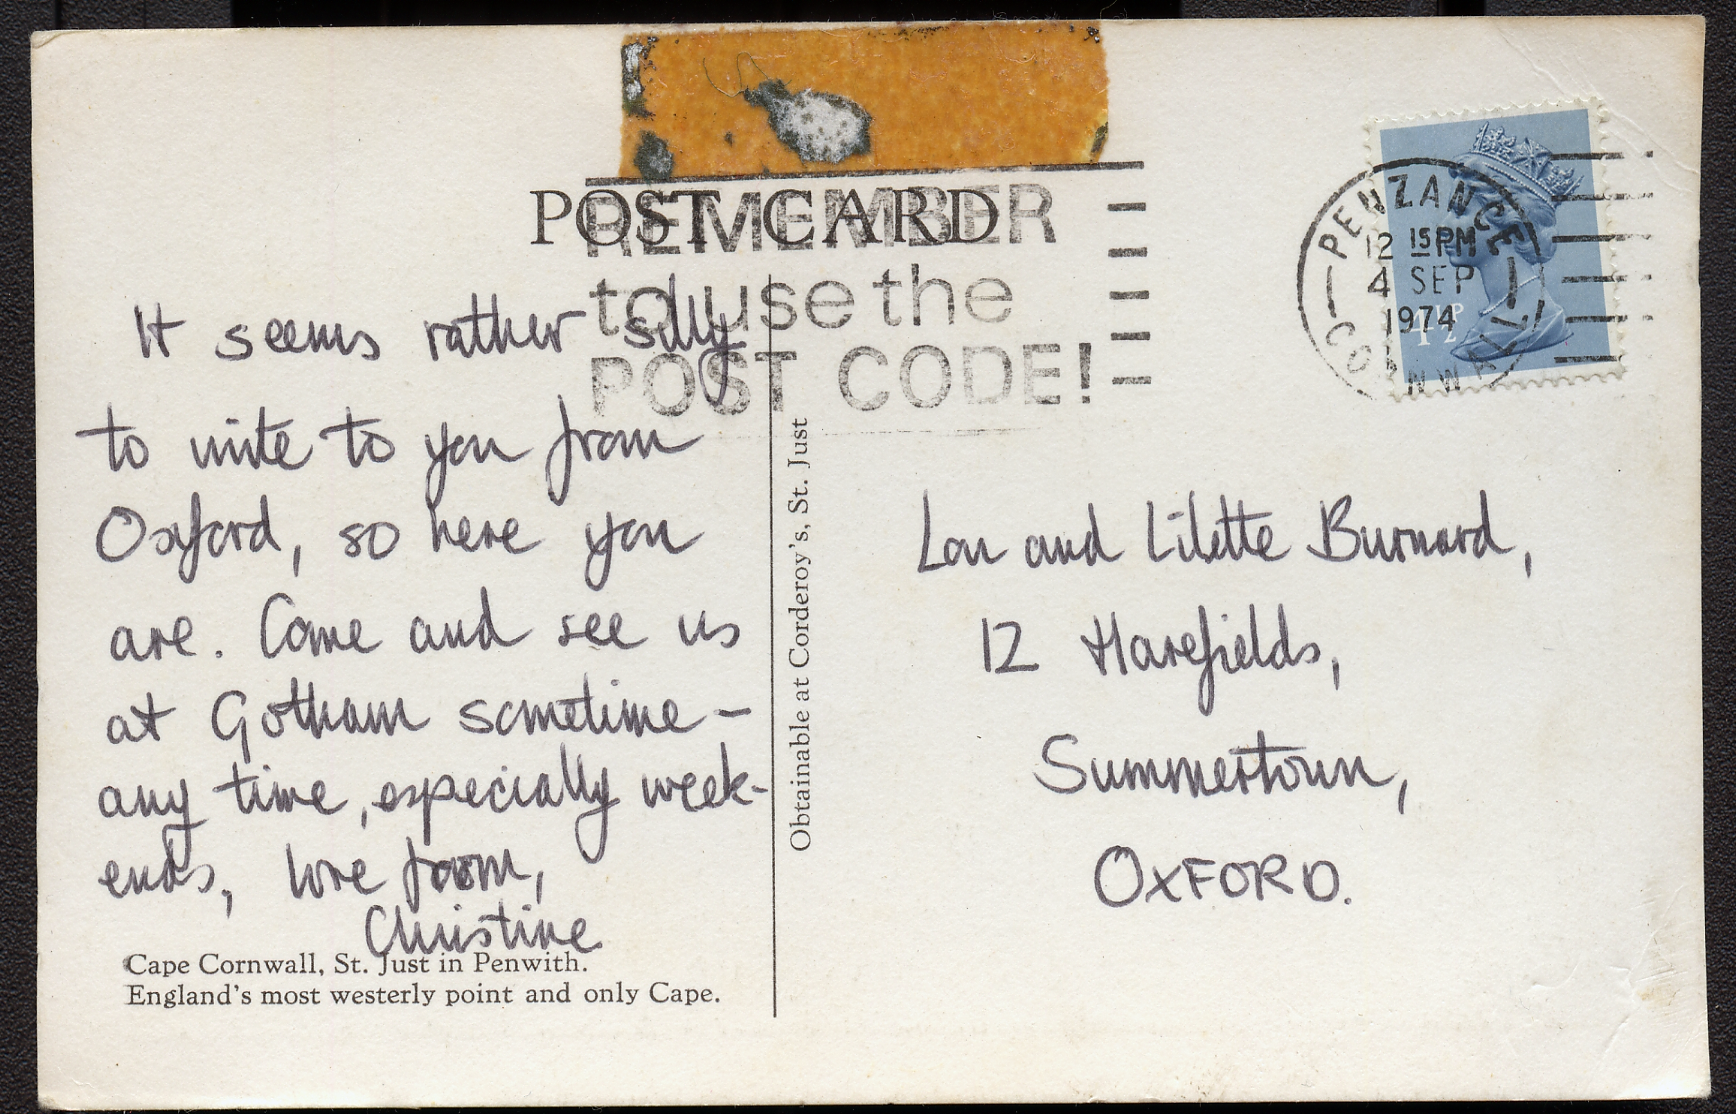 POST CARD
REMEMBER
to use the
POST CODE!
PENZANCE
12 15 PM
4 SEP
1974
CORNWALL
It seems rather silly
to write to you from
Oxford, so here you
are. Come and see us
at Gotham sometime -
any time, especially week-
ends, love from,
Christine
Cape Cornwall, St. Just in Penwith.
England's most westerly point and only Cape.
Obtainable at Corderoy's, St. Just
Lou and Lilette Burnard,
12 Harefields,
Summertown,
OXFORD.